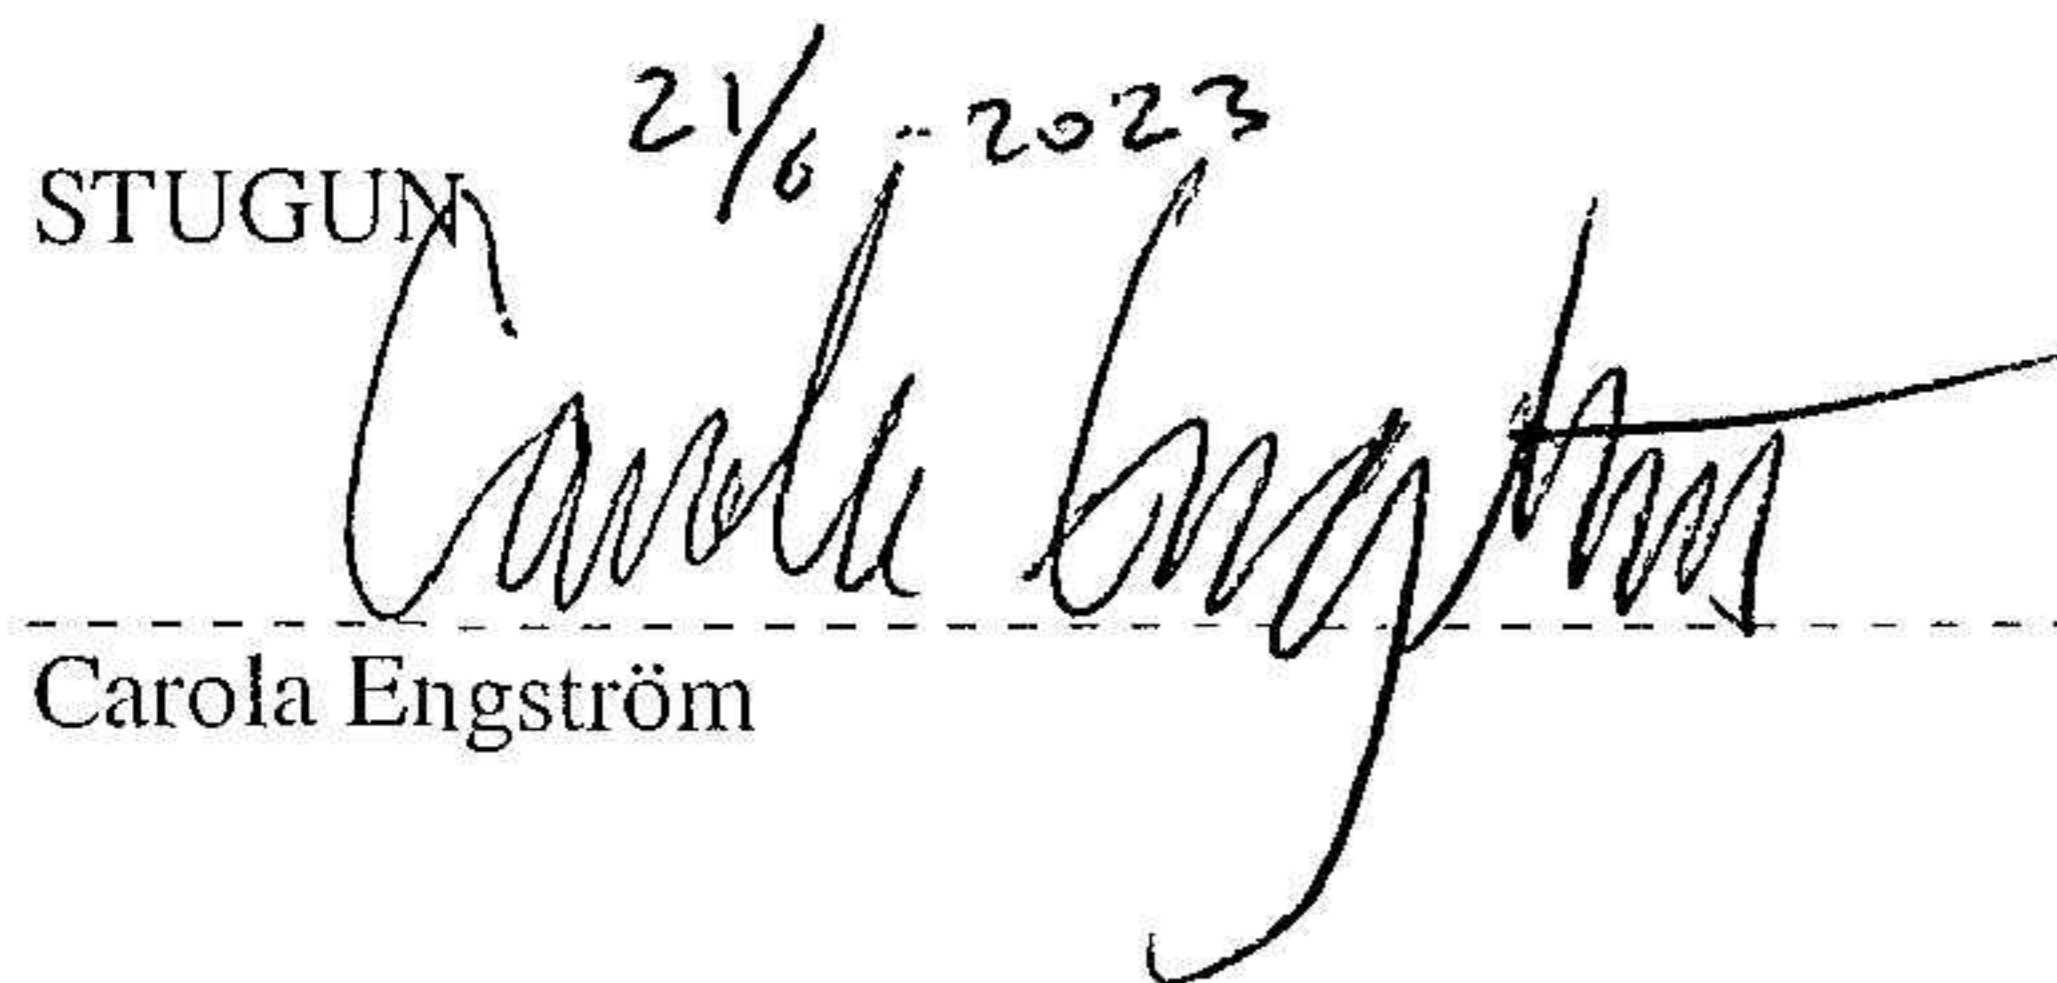 STUGUN 21/6 - 2023
Carola Engström
Carola Engström